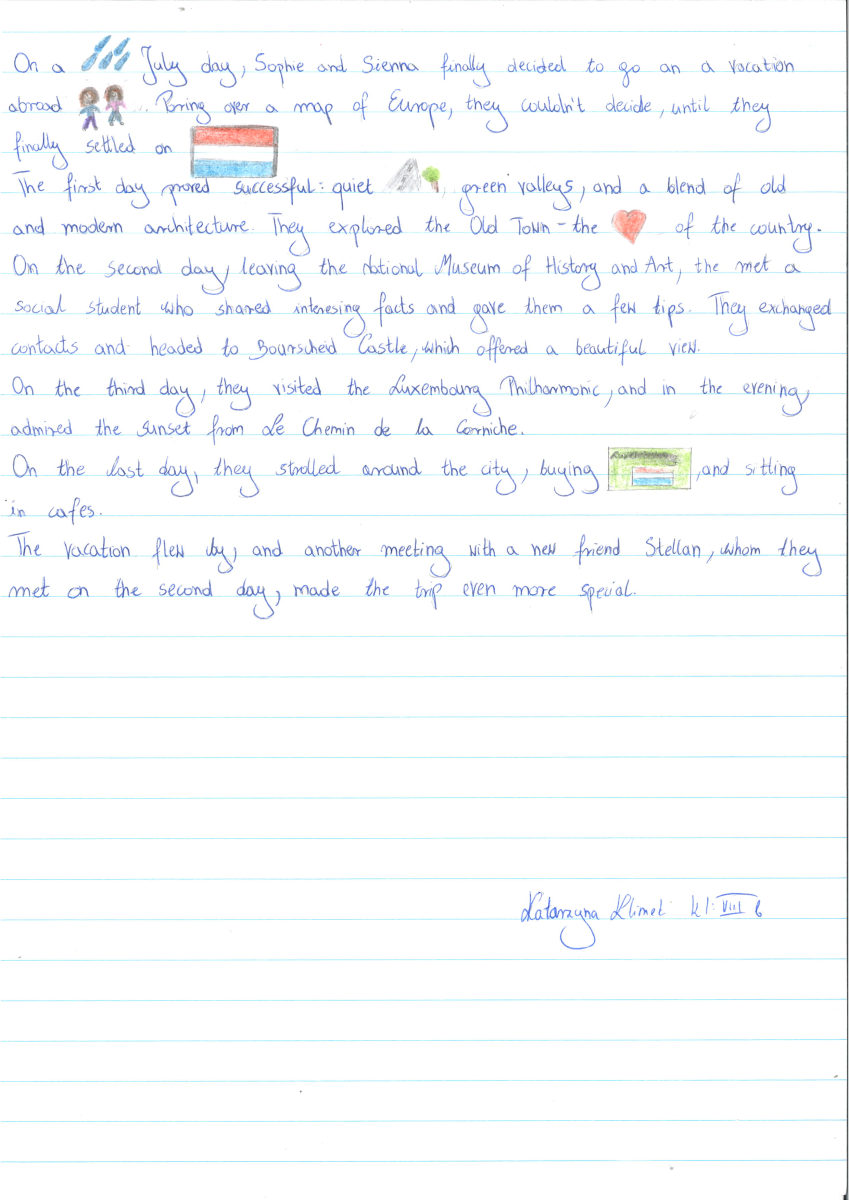 On a July day, Sophie and Sienna finally decided to go an a vacation
abroad ... Poring over a map of Europe, they couldn't decide, until they
finally settled on
The first day proved successful: quiet , green valleys, and a blend of old
and modern architecture. They explored the Old Town - the of the country.
On the second day, leaving the National Museum of History and Art, the met a
social student who shared interesing facts and gave them a few tips. They exchanged
contacts and headed to Bourscheid Castle, which offered a beautiful view.
On the third day, they visited the Luxembourg Philharmonic, and in the evening,
admired the sunset from Le Chemin de la Corniche.
On the last day, they strolled around the city, buying , and sitting
in cafes.
The vacation flew by, and another meeting with a new friend Stellan, whom they
met on the second day, made the trip even more special.
Katarzyna Klimet kl: VIII b